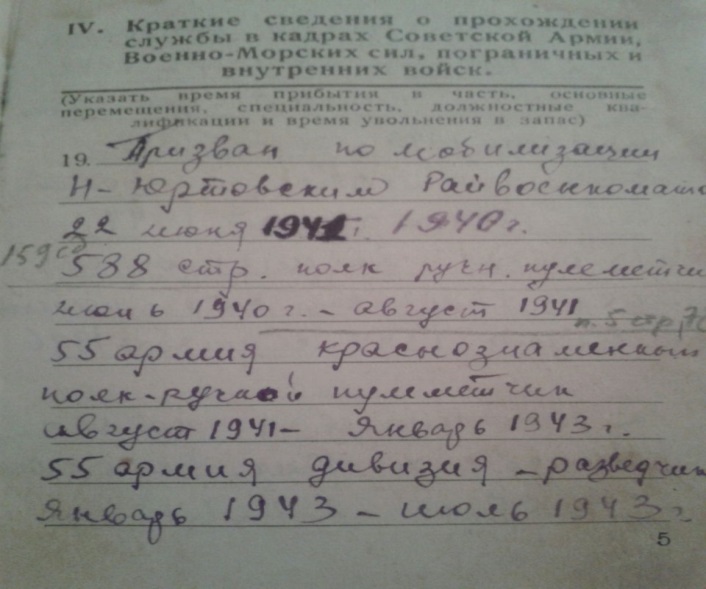 IV. Краткие сведения о прохождении
службы в кадрах Советской Армии,
Военно-Морских сил, пограничных и
внутренних войск.
(Указать время прибытия в часть, основные
перемещения, специальность, должностные ква-
лификации и время увольнения в запас)
19. Призван по мобилизации
Н-Юртовским Райвоенкомато
22 июня 1941 г. 1940 г.
159 сд
588 стр. полк ручн. пулеметчи
июнь 1940 г. - август 1941
п. 5 стр,
55 армия краснознаменный
полк-ручной пулеметчик
август 1941 - январь 1943 г.
55 армия дивизия - разведчик
январь 1943 - июль 1943 г.
5